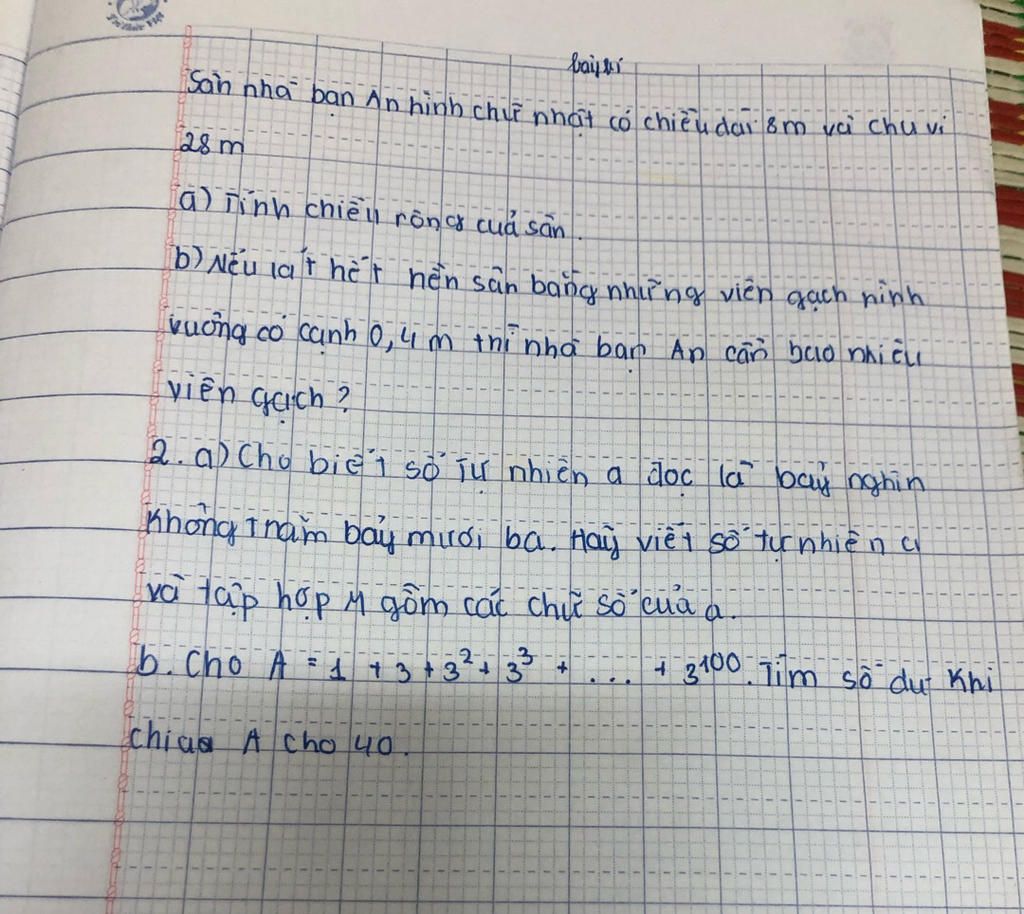 Sân nhà bạn An hình chữ nhật có chiều dài 8m và chu vi
28 m
a) Tính chiều rộng của sân.
b) Nếu lát hết nền sân bằng những viên gạch hình
vuông có cạnh 0,4 m thì nhà bạn An cần bao nhiêu
viên gạch?
2. a) Cho biết số Tự nhiên a đọc là bảy nghìn
không trăm bảy mươi ba. Hãy viết số tự nhiên a
và tập hợp M gồm các chữ số của a.
b. Cho A = 1 + 3 + 3² + 3³ + ... + 3¹⁰⁰. Tìm số dư khi
chia A cho 40.